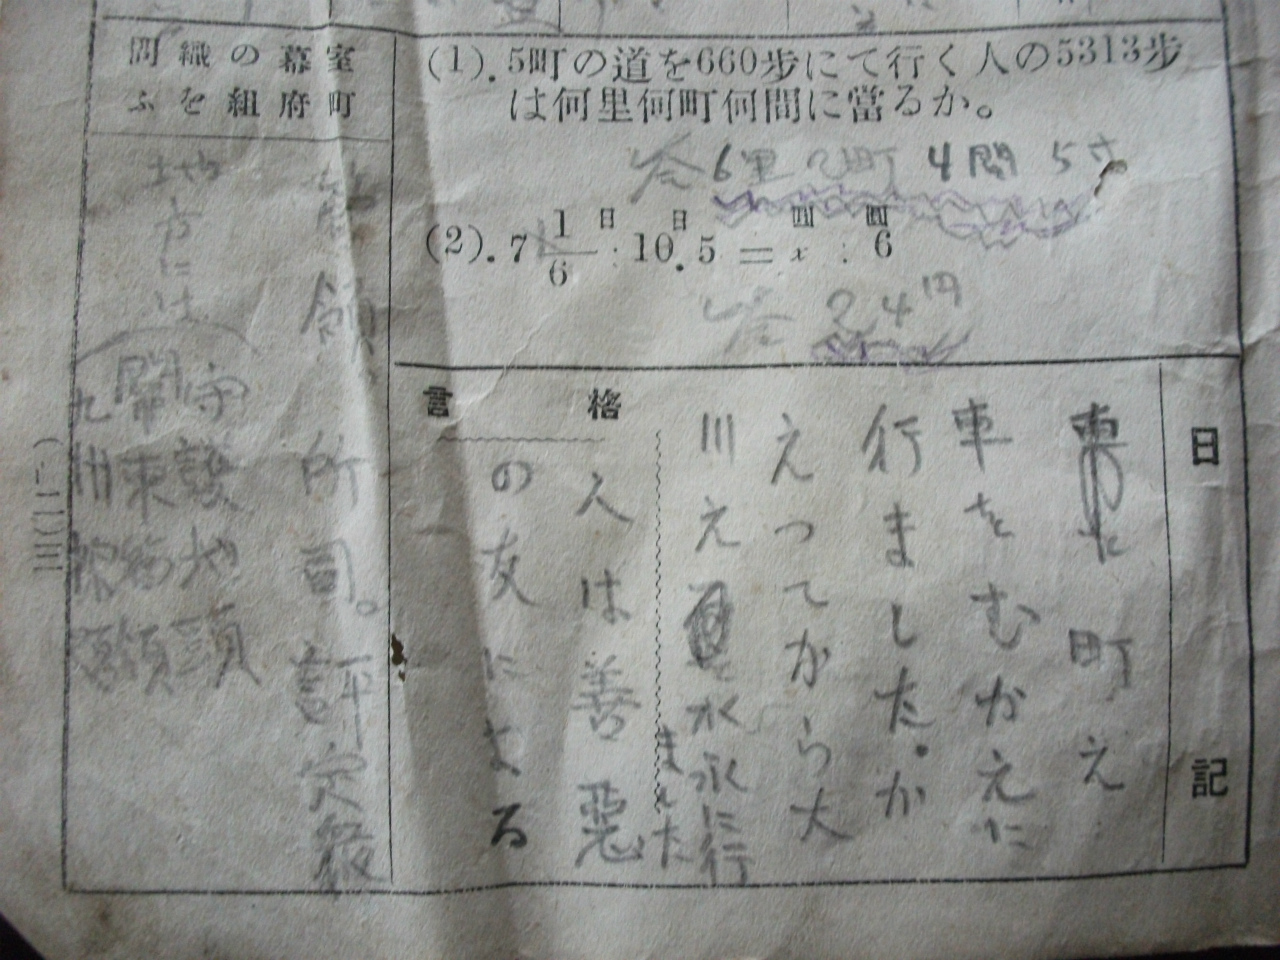 (1). 5町の道を660歩にて行く人の5313歩
は何里何町何間に當るか。
答 6里 2町 4間 5寸
(2). 7 1/6 日 : 10.5 日 = x 圓 : 6 圓
答 24円
室町幕府の組織を問ふ
管領 所司。評定衆
地方には
守護地頭
関東
九州探題
日記
町え
車をむかえに
行ました。か
えってから大
川え
水泳に行
ました
格言
人は善惡
の友による